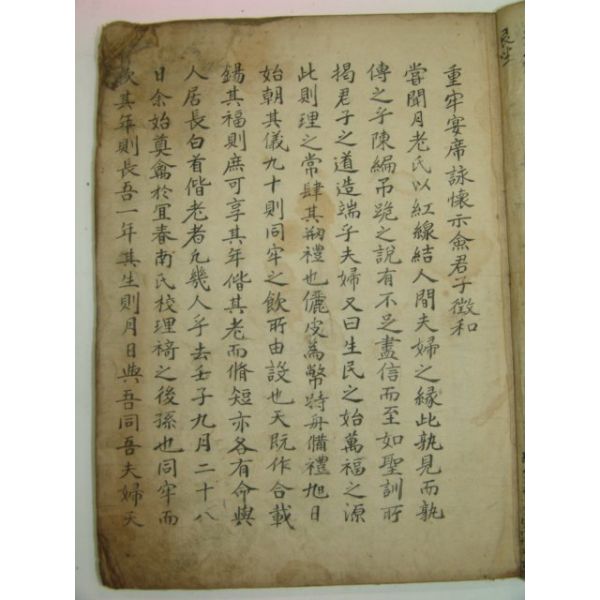 重牢宴席詠懷示僉君子徵和
嘗聞月老氏以紅線結人間夫婦之緣此孰見而孰
傳之乎陳編吊詭之說有不足盡信而至如聖訓所
揭君子之道造端乎夫婦又曰生民之始萬福之源
此則理之常肆其剏禮也儷皮為幣特舟備禮旭日
始朝其儀九十則同牢之飲所由設也天旣作合載
錫其福則庶可享其年偕其老而脩短亦各有命與
人居長白首偕老者凡幾人乎去壬子九月二十八
日余始奠禽於宜春南氏校理裿之後孫也同牢而
次其年則長吾一年其生則月日與吾同吾夫婦天